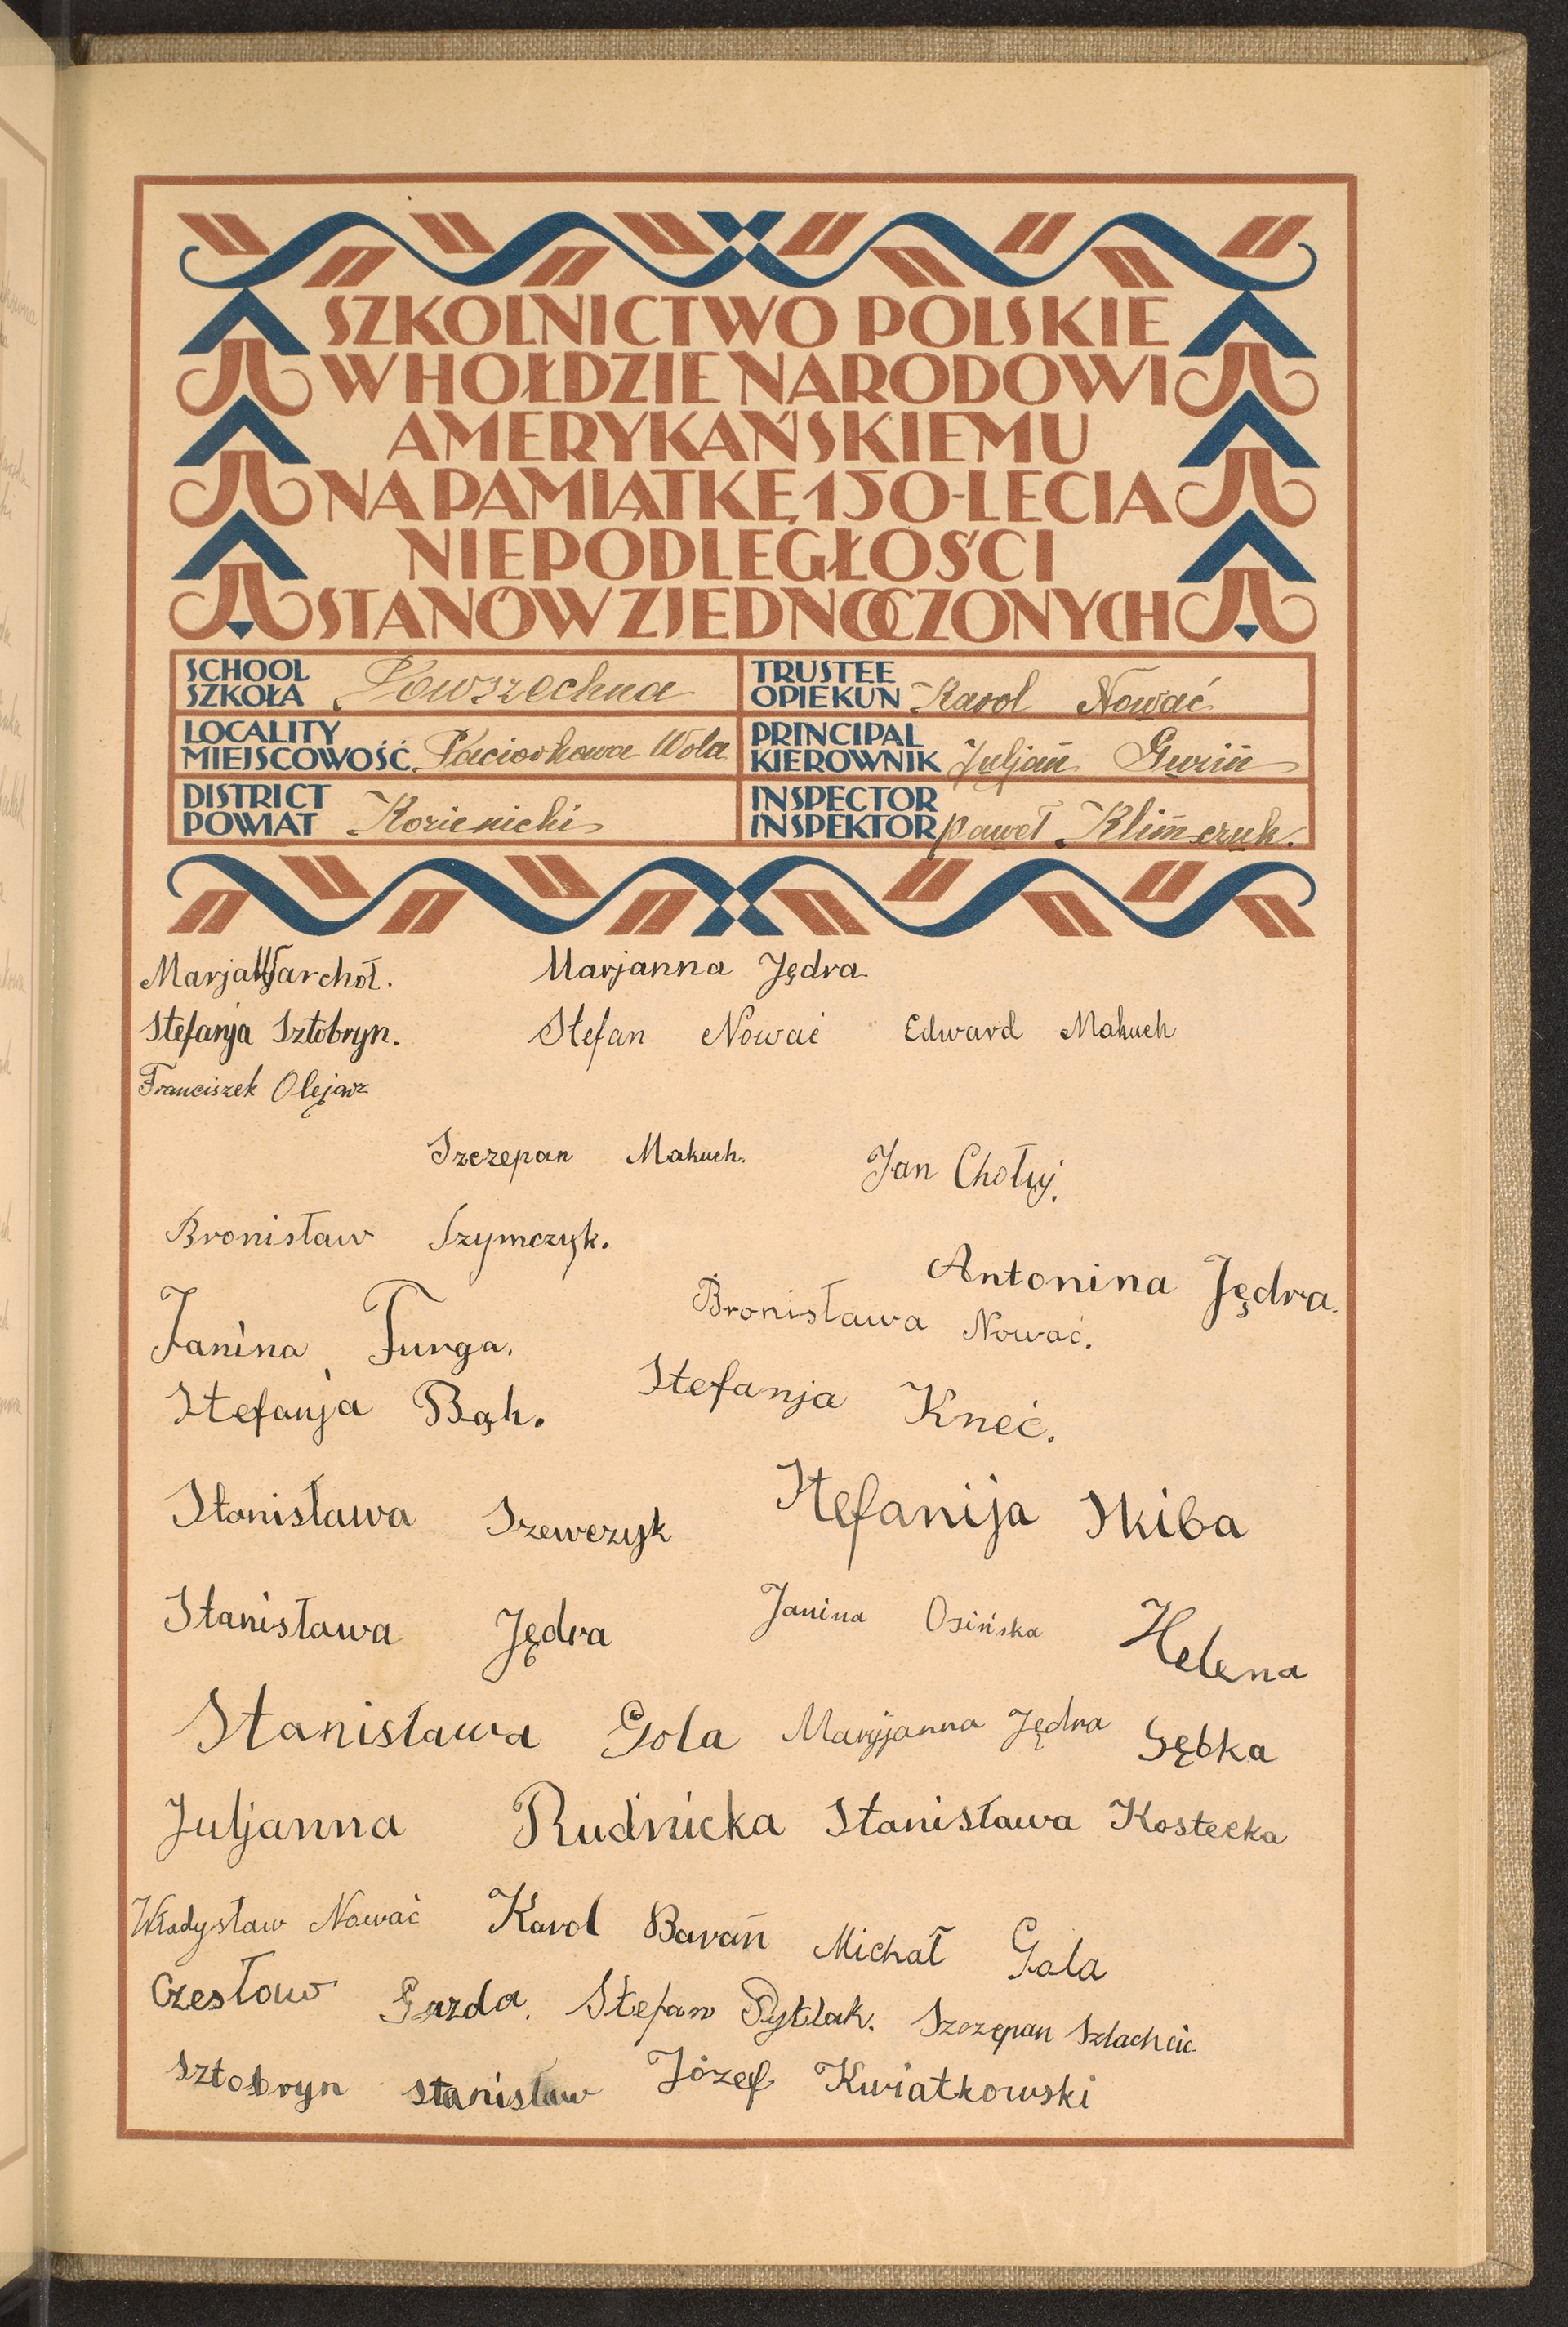 SZKOLNICTWO POLSKIE
W HOŁDZIE NARODOWI
AMERYKAŃSKIEMU
NA PAMIĄTKĘ 150-LECIA
NIEPODLEGŁOŚCI
STANÓW ZJEDNOCZONYCH
SCHOOL
SZKOŁA Powszechna
TRUSTEE
OPIEKUN Karol Nować
LOCALITY
MIEJSCOWOŚĆ Paciorkowa Wola
PRINCIPAL
KIEROWNIK Juljan Gwin
DISTRICT
POWIAT Kozienicki
INSPECTOR
INSPEKTOR Paweł Klimczuk.
Marja Warchoł. Marjanna Jędra
Stefanja Sztobryn. Stefan Nować Edward Makuch
Franciszek Olejarz
Szczepan Makuch. Jan Chołuj.
Bronisław Szymczyk.
Antonina Jędra.
Janina Furga. Bronisława Nować.
Stefanja Bąk. Stefanja Kneć.
Stanisława Szewczyk Stefanija Skiba
Stanisława Jędra Janina Osińska Helena
Stanisława Gola Maryjanna Jędra Sębka
Juljanna Rudnicka Stanisława Kostecka
Władysław Nować Karol Baran Michał Gola
Czesław Gazda. Stefan Pytlak. Szczepan Szlachcic
Sztobryn Stanisław Józef Kwiatkowski